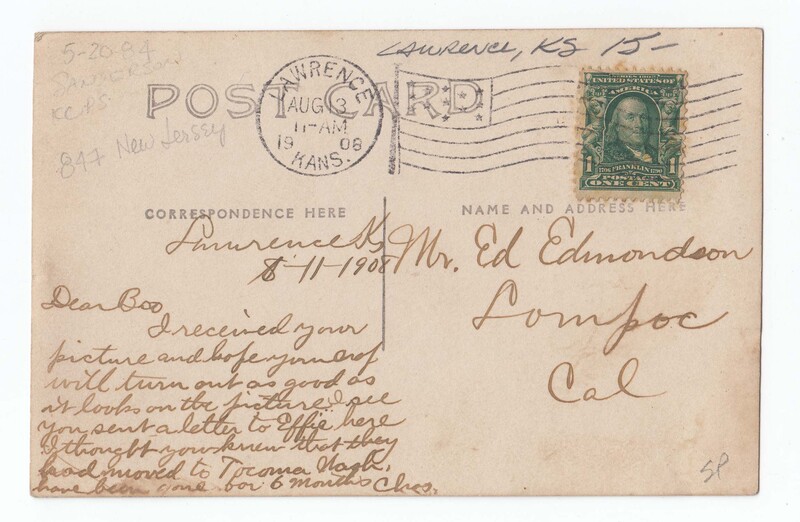 5-20-84
SANDERSON
KCPS
847 New Jersey
LAWRENCE, KS 15-
POST CARD
LAWRENCE
AUG 13
11-AM
1908
KANS.
SERIES 1902
UNITED STATES OF AMERICA
1706 FRANKLIN 1790
POSTAGE
1 ONE CENT 1
CORRESPONDENCE HERE
NAME AND ADDRESS HERE
Lawrence Ks
8-11-1908
Dear Bro
I received your
picture and hope your crop
will turn out as good as
it looks on the picture. I see
you sent a letter to Effie here
I thought you knew that they
had moved to Tocoma Wash,
have been gone for 6 months Chas.
Mr. Ed Edmondson
Lompoc
Cal
SP